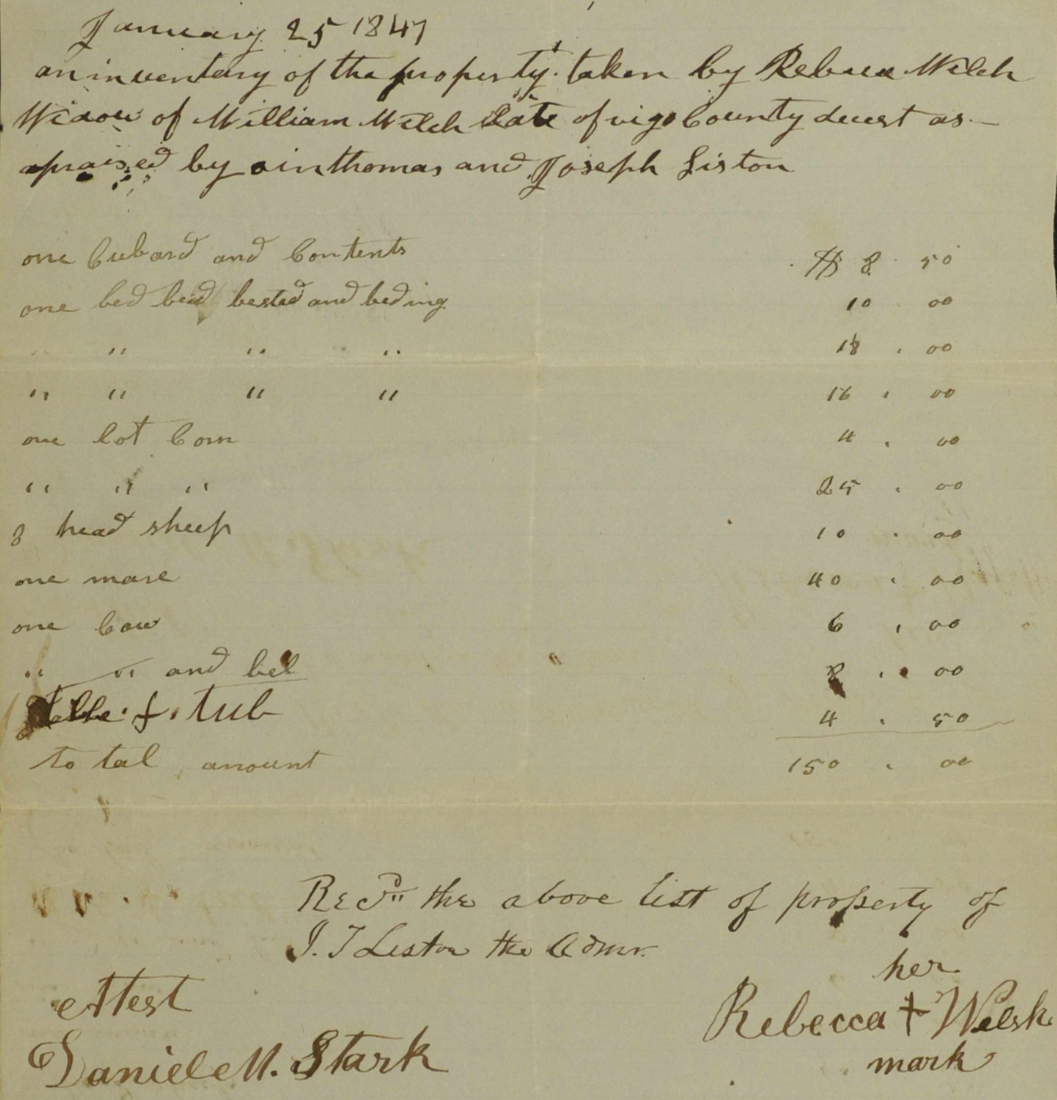 January 25 1847
an inventory of the property taken by Rebeca Welch
Widow of William Welch Late of vigo County decest as
apraised by oin thomas and Joseph Liston
one Cubard and Contents $ 8 . 50
one bed bed bested and beding 10 00
" " " " 18 . 00
" " " " 16 . 00
one lot Corn 4 . 00
" " " 25 . 00
8 head sheep 10 . 00
one mare 40 . 00
one Cow 6 . 00
" " and bel 8 . 00
& tub 4 . 50
total amount 150 . 00
Recd the above list of property of
J. T Liston the Admr.
Attest
her
Rebecca + Welsh
mark
Daniel M. Stark